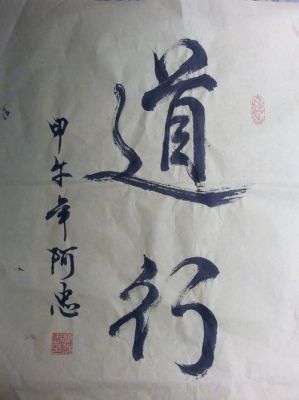 道行
甲午年阿忠